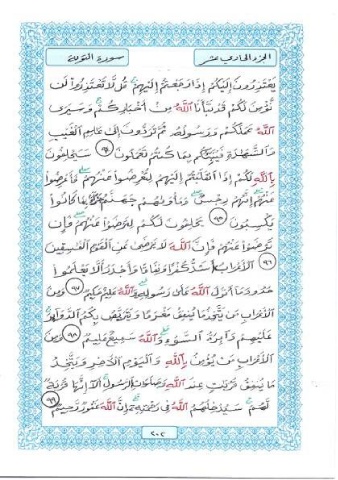 الجزء الحادي عشر
سورة التوبة
يَعْتَذِرُونَ إِلَيْكُمْ إِذَا رَجَعْتُمْ إِلَيْهِمْ قُل لَّا تَعْتَذِرُوا۟ لَن
نُّؤْمِنَ لَكُمْ قَدْ نَبَّأَنَا اللَّهُ مِنْ أَخْبَارِكُمْ وَسَيَرَى
اللَّهُ عَمَلَكُمْ وَرَسُولُهُ ثُمَّ تُرَدُّونَ إِلَى عَالِمِ الْغَيْبِ
وَالشَّهَادَةِ فَيُنَبِّئُكُم بِمَا كُنتُمْ تَعْمَلُونَ ٩٤ سَيَحْلِفُونَ
بِاللَّهِ لَكُمْ إِذَا انقَلَبْتُمْ إِلَيْهِمْ لِتُعْرِضُوا عَنْهُمْ فَأَعْرِضُوا
عَنْهُمْ إِنَّهُمْ رِجْسٌ وَمَأْوَاهُمْ جَهَنَّمُ جَزَاءً بِمَا كَانُوا
يَكْسِبُونَ ٩٥ يَحْلِفُونَ لَكُمْ لِتَرْضَوْا عَنْهُمْ فَإِن
تَرْضَوْا عَنْهُمْ فَإِنَّ اللَّهَ لَا يَرْضَى عَنِ الْقَوْمِ الْفَاسِقِينَ
٩٦ الْأَعْرَابُ أَشَدُّ كُفْرًا وَنِفَاقًا وَأَجْدَرُ أَلَّا يَعْلَمُوا
حُدُودَ مَا أَنزَلَ اللَّهُ عَلَى رَسُولِهِ وَاللَّهُ عَلِيمٌ حَكِيمٌ ٩٧ وَمِنَ
الْأَعْرَابِ مَن يَتَّخِذُ مَا يُنفِقُ مَغْرَمًا وَيَتَرَبَّصُ بِكُمُ الدَّوَائِرَ
عَلَيْهِمْ دَائِرَةُ السَّوْءِ وَاللَّهُ سَمِيعٌ عَلِيمٌ ٩٨ وَمِنَ
الْأَعْرَابِ مَن يُؤْمِنُ بِاللَّهِ وَالْيَوْمِ الْآخِرِ وَيَتَّخِذُ
مَا يُنفِقُ قُرُبَاتٍ عِندَ اللَّهِ وَصَلَوَاتِ الرَّسُولِ أَلَا إِنَّهَا قُرْبَةٌ
لَّهُمْ سَيُدْخِلُهُمُ اللَّهُ فِي رَحْمَتِهِ إِنَّ اللَّهَ غَفُورٌ رَّحِيمٌ ٩٩
٢٠٢